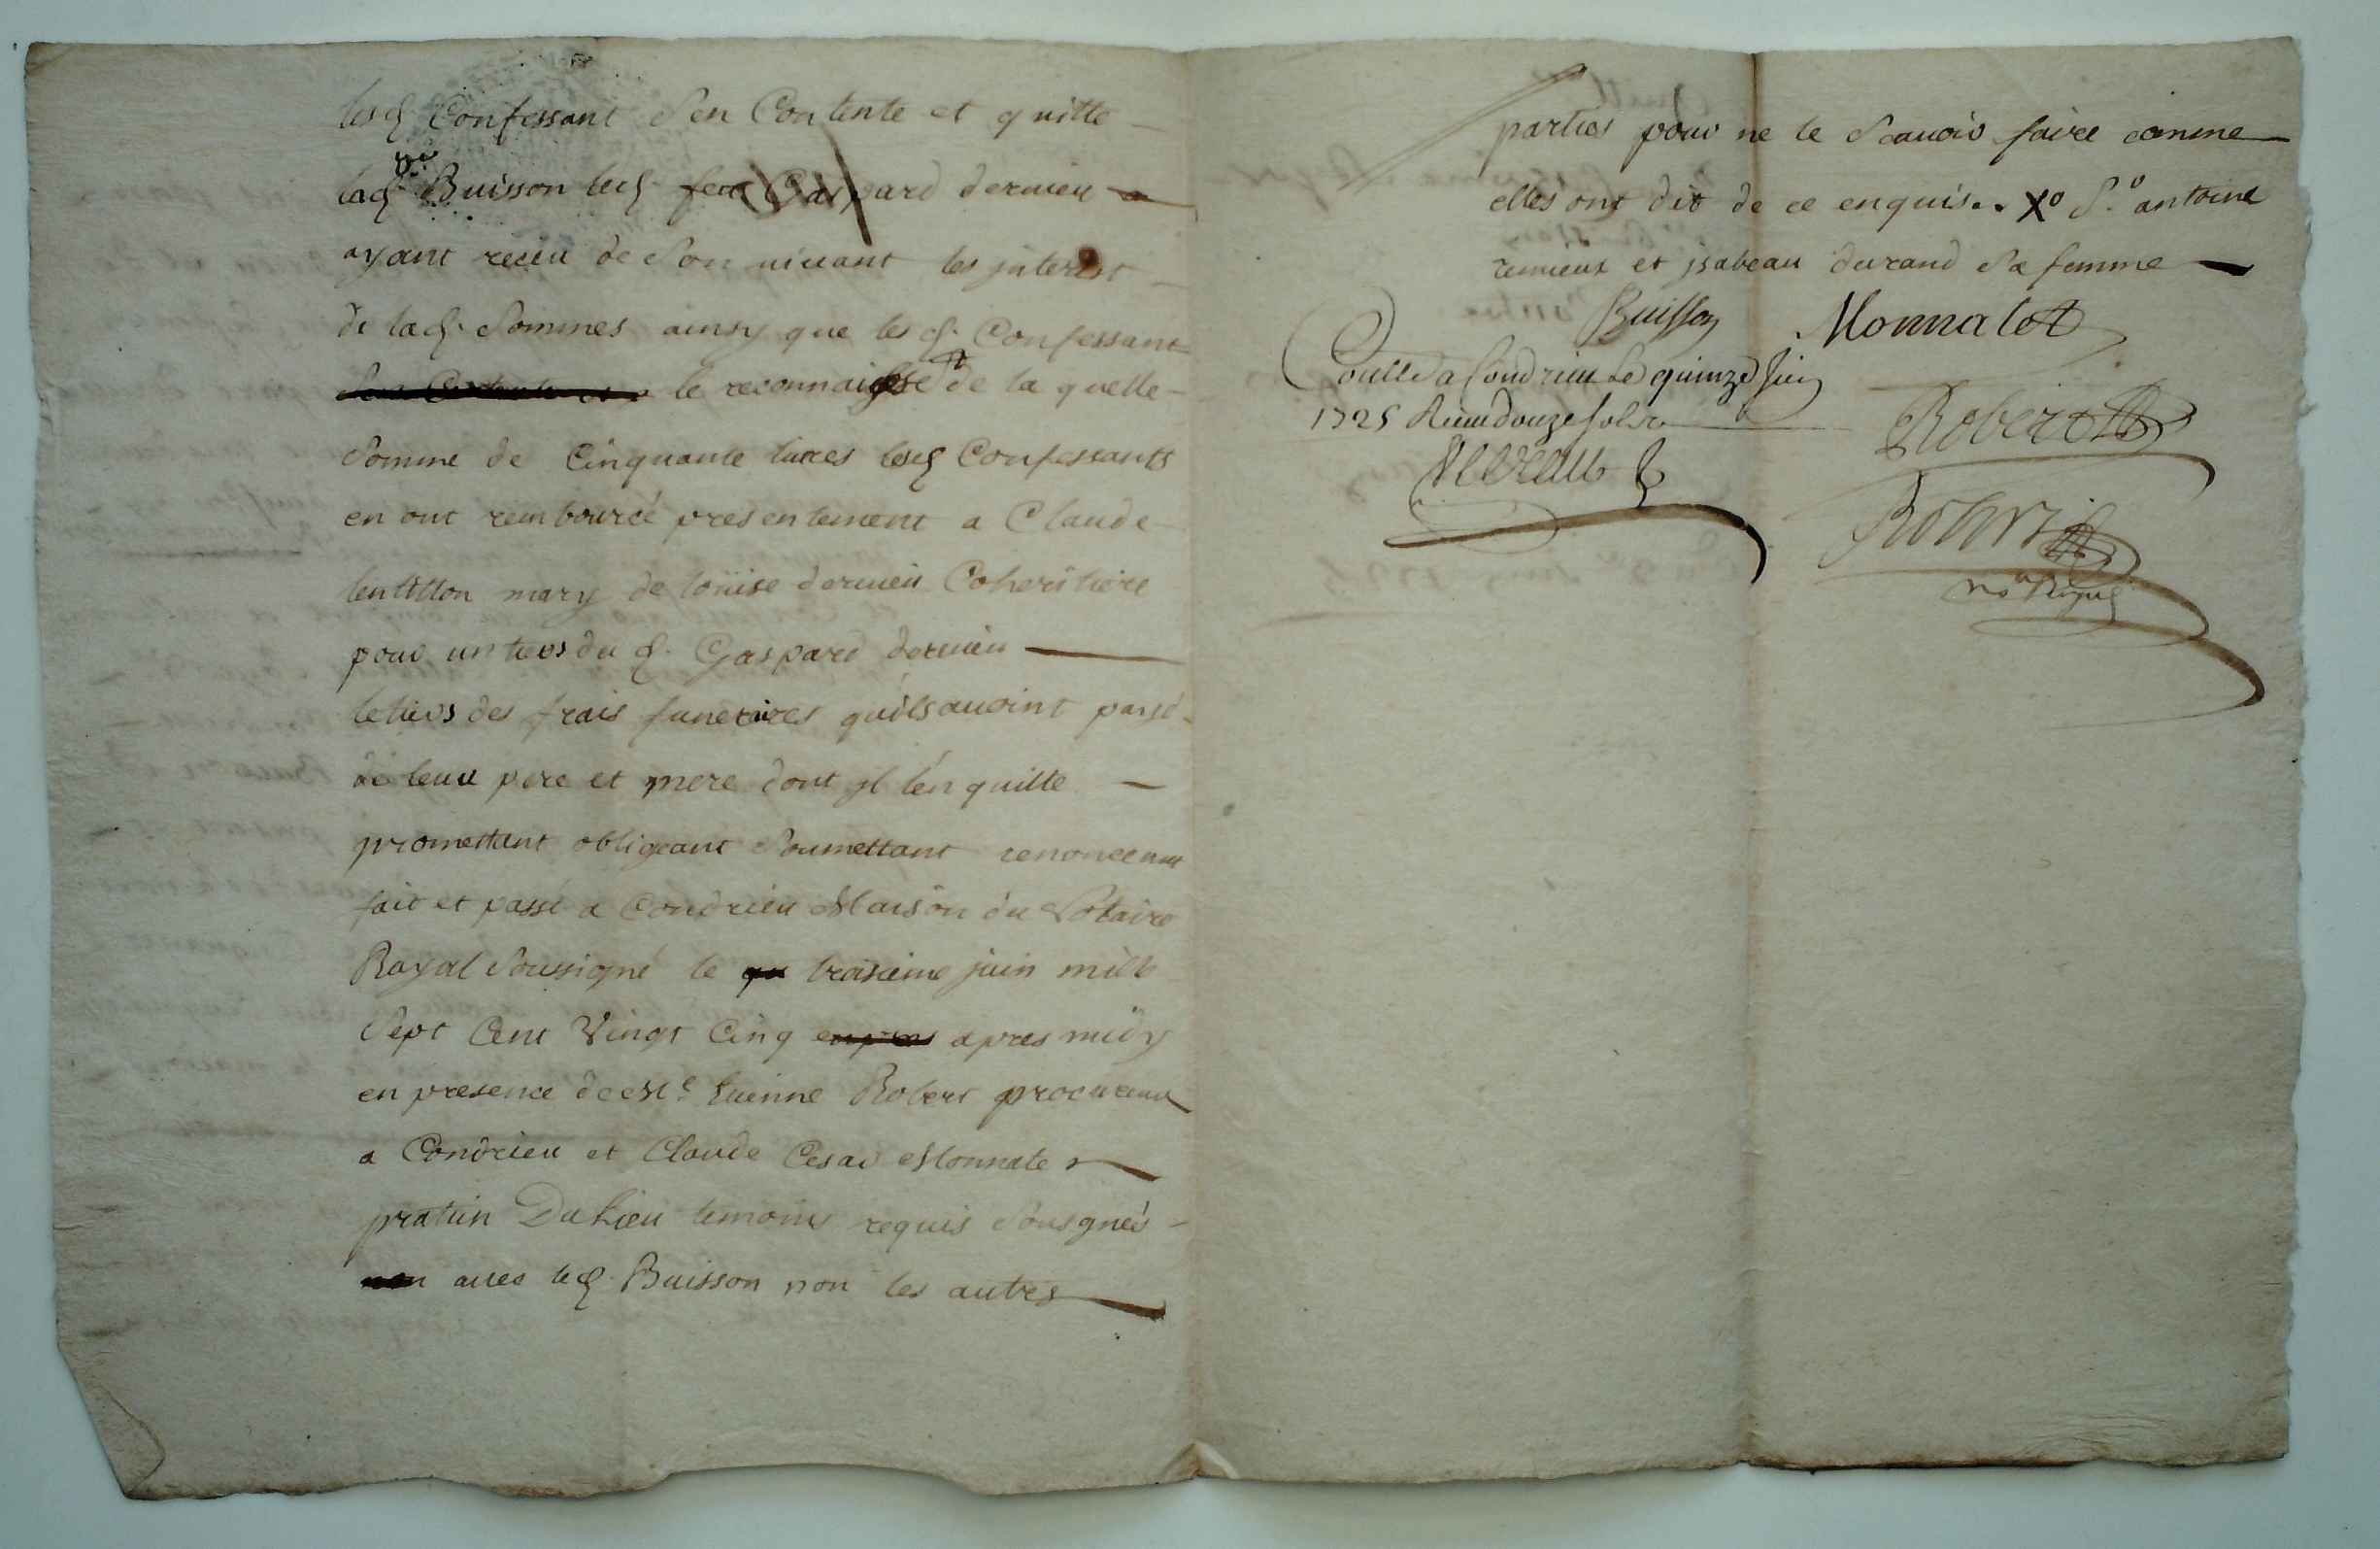 lesd Confessant s'en Contente et quitte
lad. Buisson led. feu Gaspard dervieu
ayant receu de son vivant les jnterest
de lad. sommes ainsy que lesd. Confessant
le reconnaisse de la quelle
somme de Cinquante livres lesd Confessants
en ont rembourcé presentement a Claude
mary de loüise dervieu Coheritiere
pour un tiers dud. Gaspard dervieu
le tiers des frais funeraires quils avoint payé
de leur pere et mere dont jl len quitte
promettant obligeant soumettant renonceant
fait et passé a Condrieu Maison du Notaire
Royal soussigné le troisieme juin mille
sept Cent Vingt Cinq apres midy
en presence de Me. Etienne Robert procureur
a Condrieu et Claude Cesar Monnate
praticien Du Lieu temoins requis sousignés
avec led. Buisson non les autres
parties pour ne le scavoir faire comme
elles ont dit de ce enquis. Xo So. antoine
remieux et jsabeau durand sa femme
Buisson Monnatet
Coullé a Condrieu Le quinze Juin
1725 Receu douze sols
Robert
Robert
no Royal